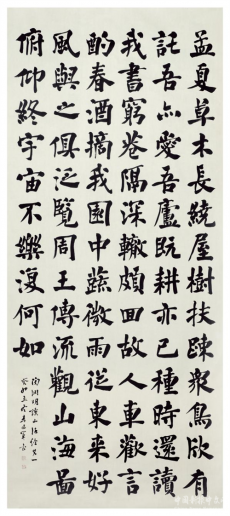 孟夏草木長繞屋樹扶踈眾鳥欣有
託吾亦愛吾廬既耕亦已種時還讀
我書窮巷隔深轍頗回故人車歡言
酌春酒摘我園中蔬微雨從東來好
風與之俱泛覽周王傳流觀山海圖
俯仰終宇宙不樂復何如
陶淵明讀山海經其一
癸卯